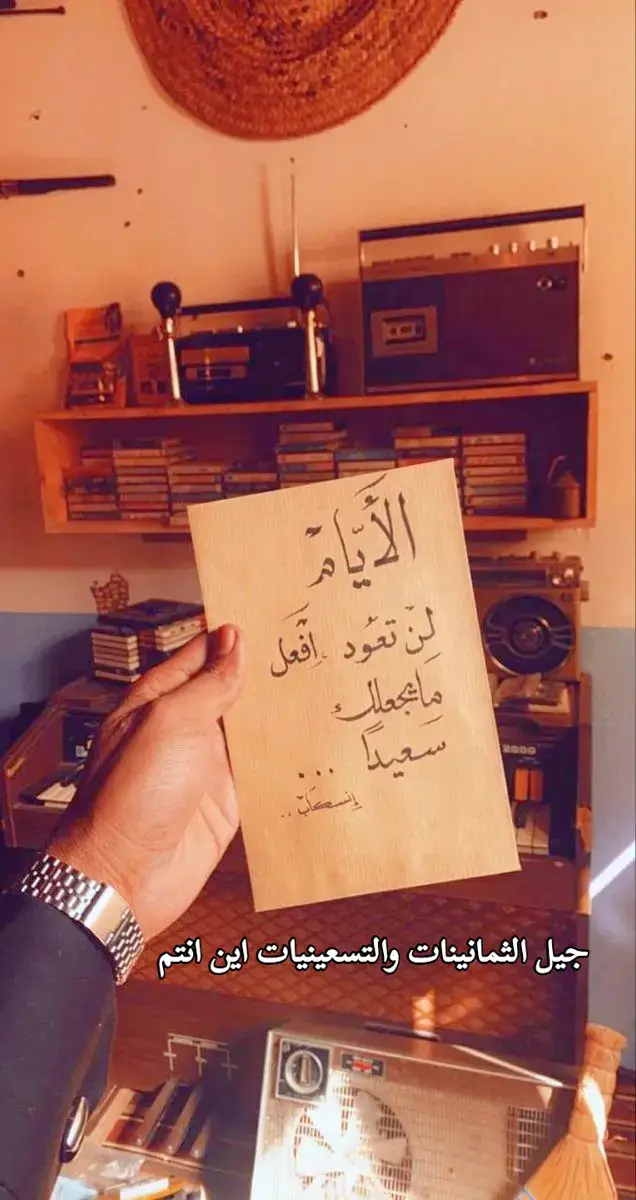 الأَيَّام
لن تعود إفْعَل
مَا يجعلك
سَعيداً ...
إنسكاب ..
جيل الثمانينات والتسعينيات اين انتم